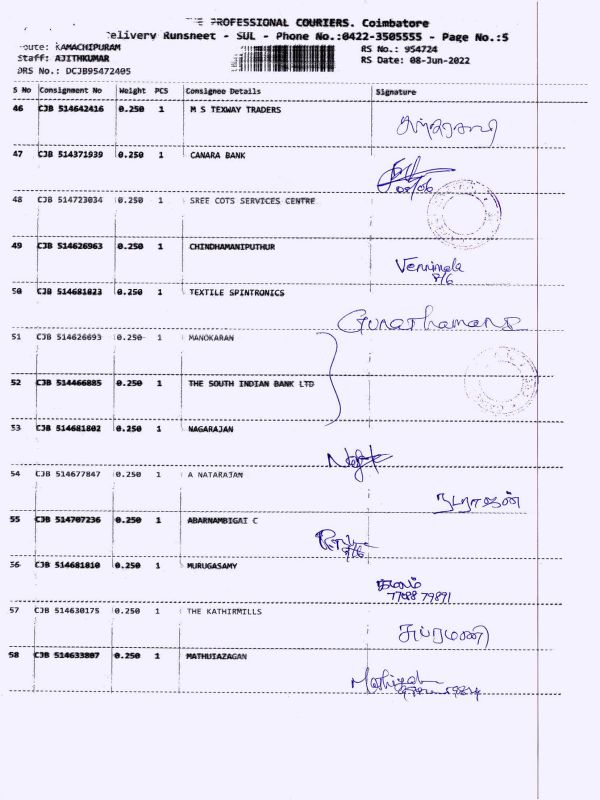 PROFESSIONAL COURIERS. Coimbatore
Delivery Runsheet - SUL - Phone No.:0422-3505555 - Page No.:5
oute: KAMACHIPURAM
RS No.: 954724
Staff: AJITHKUMAR
RS Date: 08-Jun-2022
DRS No.: DCJB95472405
S No Consignment No Weight PCS Consignee Details Signature
46 CJB 514642416 0.250 1 M S TEXWAY TRADERS
47 CJB 514371939 0.250 1 CANARA BANK
08/06
48 CJB 514723034 0.250 1 SREE COTS SERVICES CENTRE
49 CJB 514626963 0.250 1 CHINDHAMANIPUTHUR
Vennimala
8/6
50 CJB 514681823 0.250 1 TEXTILE SPINTRONICS
51 CJB 514626693 0.250 1 MANOKARAN
52 CJB 514466885 0.250 1 THE SOUTH INDIAN BANK LTD
53 CJB 514681802 0.250 1 NAGARAJAN
54 CJB 514677847 0.250 1 A NATARAJAN
நடராஜன்
55 CJB 514707236 0.250 1 ABARNAMBIGAI C
56 CJB 514681810 0.250 1 MURUGASAMY
77088 79891
57 CJB 514630175 0.250 1 THE KATHIRMILLS
சுப்ரமணி
58 CJB 514633807 0.250 1 MATHUIAZAGAN